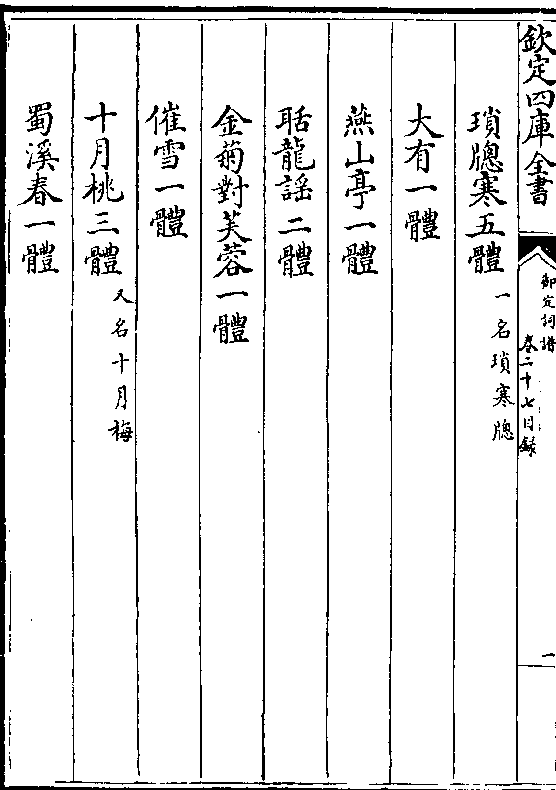 欽定四庫全書
御定詞譜
卷二十七目錄
一
瑣牕寒五體 一名瑣寒牕
大有一體
燕山亭一體
聒龍謡二體
金菊對芙蓉一體
催雪一體
十月桃三體 又名十月梅
蜀溪春一體